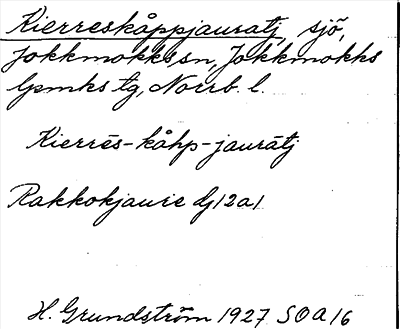 Kierreskåppjauratj, sjö,
Jokkmokks sn, Jokkmokks
lpmks tg, Norrb. l.
Kierrēs-kåhp-jaurātj
Rakkokjaure dj 2 a 1
H. Grundström 1927 SOA 16